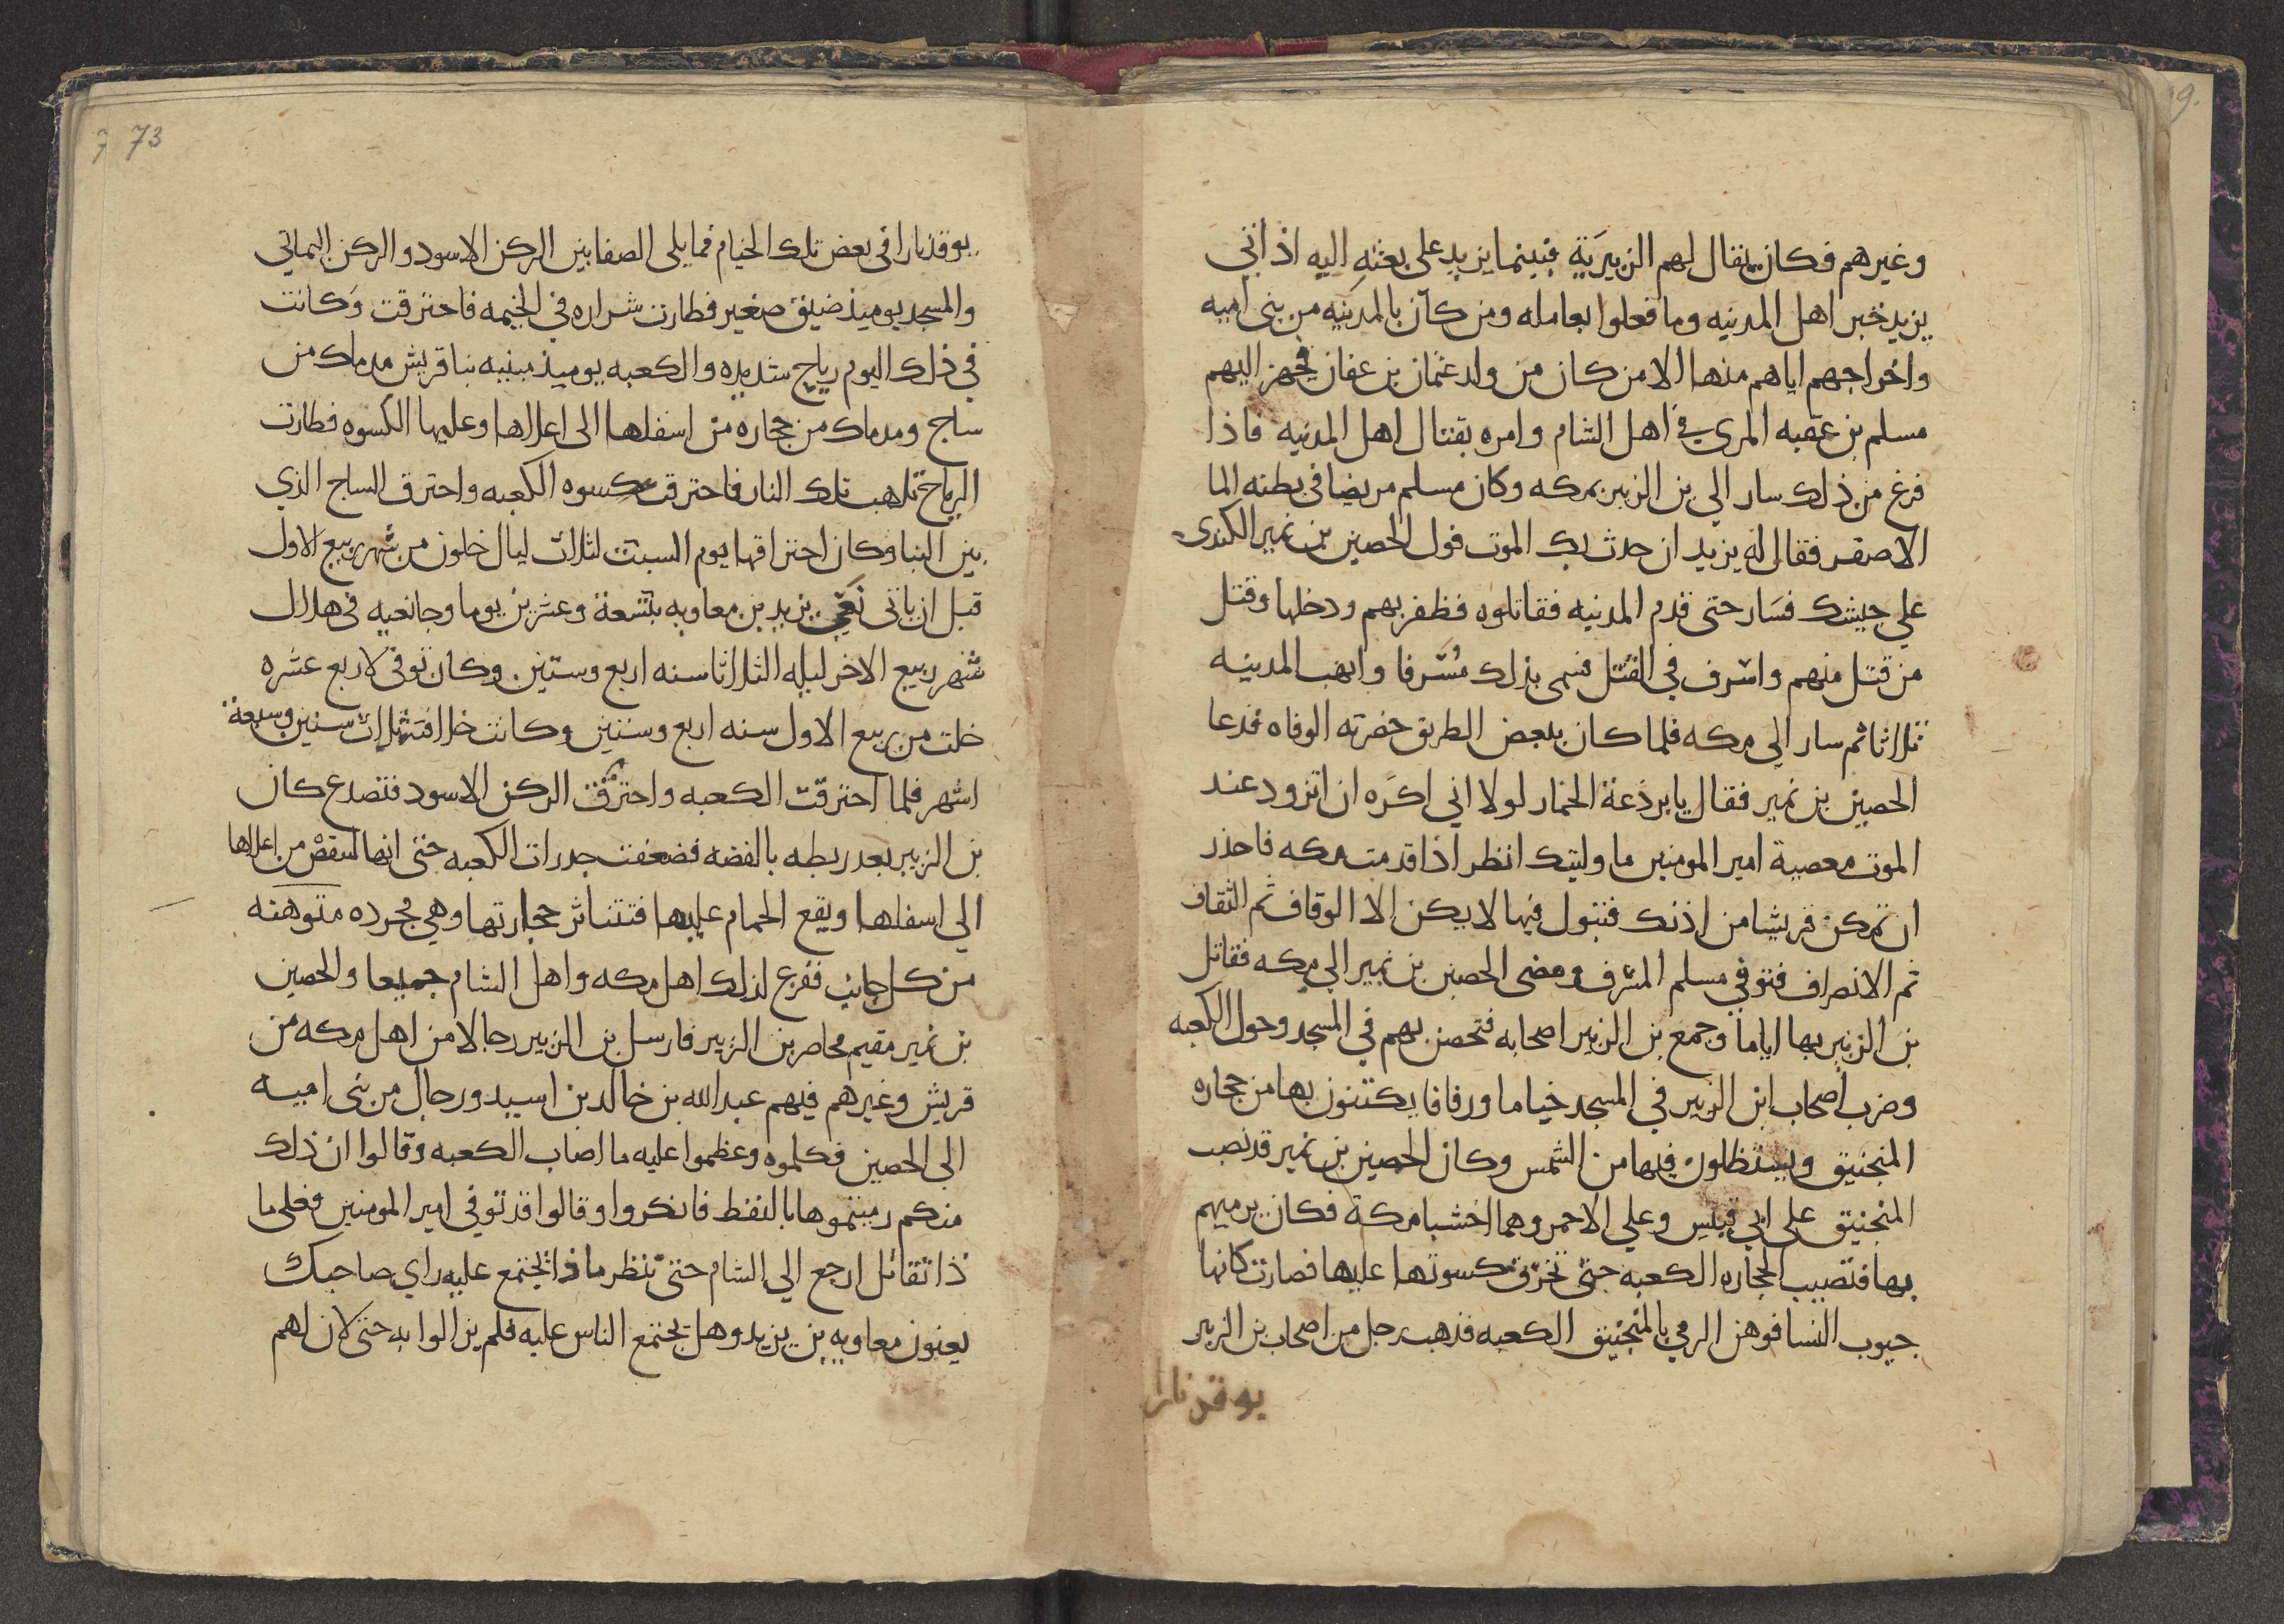 وغيرهم فكان يقال لهم الزبيرية فبينما يزيد على بعثه اليه اذ اتي
يزيد خبر اهل المدينه وما فعلوا بعامله ومن كان بالمدينه من بني اميه
واخراجهم اياهم منها الا من كان من ولد عثمان بن عفان فجهز اليهم
مسلم بن عقبه المري في اهل الشام وامره بقتال اهل المدينه فاذا
فرغ من ذلك سار الي بن الزبير بمكه وكان مسلم مريضا في بطنه الما
الاصفر فقال له يزيد ان حدث بك الموت فول الحصين بن نمير الكندي
علي جيشك فسار حتى قدم المدينه فقاتلوه فظفر بهم ودخلها وقتل
من قتل منهم واسرف في القتل فسمى بذلك مسرفا وانهب المدينه
ثلاثا ثم سار الى مكه فلما كان ببعض الطريق حضرته الوفاه فدعا
الحصين بن نمير فقال يا برذعة الحمار لولا اني اكره ان اتزود عند
الموت معصية امير المومنين ما وليتك انظر اذا قدمت مكه فاحذر
ان تمكن قريشا من اذنك فتبول فيها لا يكن الا الوقاف ثم الثقاف
ثم الانصراف فتوفي مسلم المسرف ومضى الحصين بن نمير الي مكه فقاتل
بن الزبير بها اياما وجمع بن الزبير اصحابه فتحصن بهم في المسجد وحول الكعبه
وضرب اصحاب ابن الزبير في المسجد خياما ورفافا يكتنون بها من حجاره
المنجنيق ويستظلون فيها من الشمس وكان الحصين بن نمير قد نصب
المنجنيق علي ابي قبيس وعلي الاحمر وهما اخشبا مكة فكان يرميهم
بها فتصيب الحجاره الكعبه حتى تخرق كسوتها عليها فصارت كانها
جيوب النسا فوهن الرمي بالمنجنيق الكعبه فذهب رجل من اصحاب بن الزبير
يوقد نارا
73
يوقد نارا في بعض تلك الخيام مما يلى الصفا بين الركن الاسود والركن اليماني
والمسجد يوميذ ضيق صغير فطارت شراره في الخيمه فاحترقت وكانت
في ذلك اليوم رياح شديده والكعبه يوميذ مبنيه بنا قريش مدماك من
ساج ومدماك من حجاره من اسفلها الى اعلاها وعليها الكسوه فطارت
الرياح تلاهب تلك النار فاحترقت كسوه الكعبه واحترق الساج الذي
بين البنا وكان احتراقها يوم السبت لثلاث ليال خلون من شهر ربيع الاول
قبل ان ياتى نعي يزيد بن معاويه بتسعة وعشرين يوما وجا نعيه في هلال
شهر ربيع الاخر ليله الثلاثا سنه اربع وستين وكان توفي لاربع عشره
خلت من ربيع الاول سنه اربع وستين وكانت خلافته ثلاث سنين وسبعة
اشهر فلما احترقت الكعبه واحترقت الركن الاسود فتصدع كان
بن الزبير بعد ربطه بالفضه فضعفت جدرات الكعبه حتى انها لتنقض من اعلاها
الي اسفلها ويقع الحمام عليها فتتناثر حجارتها وهي مجرده متوهنه
من كل جانب ففزع لذلك اهل مكه واهل الشام جميعا والحصين
بن نمير مقيم محاصر بن الزبير فارسل بن الزبير رجالا من اهل مكه من
قريش وغيرهم فيهم عبد الله بن خالد بن اسيد ورجال من بني اميه
الى الحصين فكلموه وعظموا عليه ما اصاب الكعبه وقالوا ان ذلك
منكم رميتموها بالنفط فانكروا وقالوا قد توفي امير المومنين فعلى ما
ذا تقاتل ارجع الي الشام حتى تنظر ماذا يجتمع عليه راي صاحبك
يعنون معاويه بن يزيد وهل يجتمع الناس عليه فلم يزالوا به حتى لان لهم